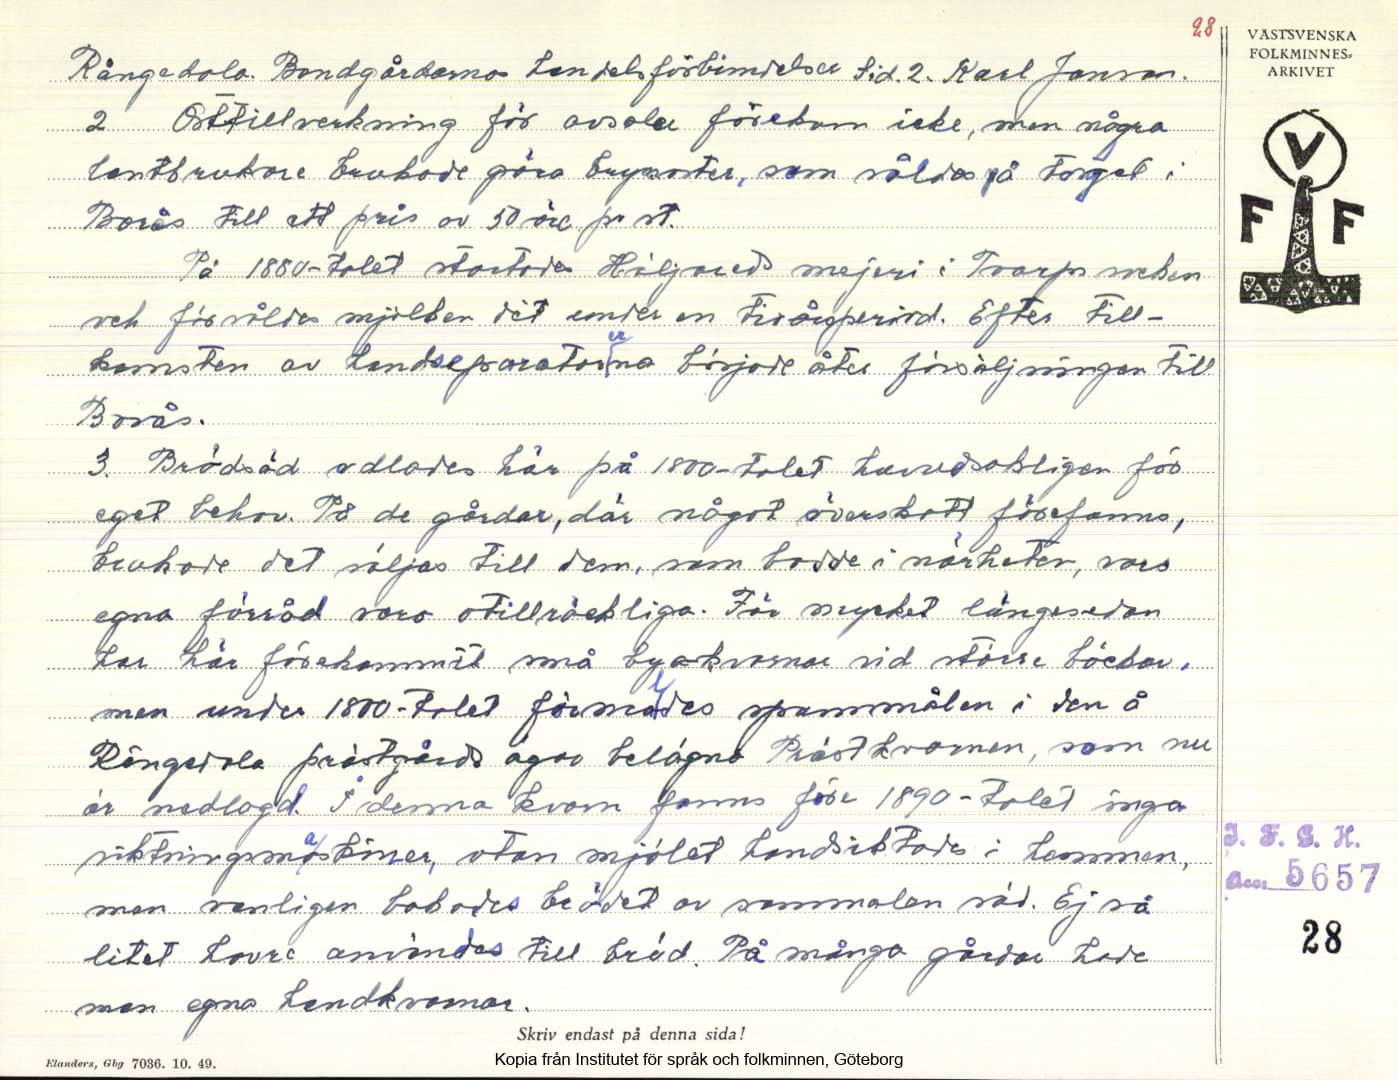 28
VÄSTSVENSKA
FOLKMINNES-
ARKIVET
V
F F
Rångedala. Bondgårdarnas handelsförbindelser Sid. 2. Karl Janson.
2 Osttillverkning för avsalu förekom icke, men några
lantbrukare brukade göra byxostar, som såldes på torget i
Borås till ett pris av 50 öre pr st.
På 1880-talet startades Häljareds mejeri i Toarps socken
och försåldes mjölken dit under en tioårsperiod. Efter till-
komsten av handseparatorerna började åter försäljningen till
Borås.
3. Brödsäd odlades här på 1800-talet huvudsakligen för
eget behov. På de gårdar, där något överskott förefanns,
brukade det säljas till dem, som bodde i närheten, vars
egna förråd voro otillräckliga. För mycket längesedan
har här förekommit små kvarnar vid större bäckar,
men under 1800-talet förmaldes spannmålen i den å
Rångedala prästgårds ägor belägna Prästkvarnen, som nu
är nedlagd. I denna kvarn fanns före 1890-talet inga
siktningsmaskiner, utan mjölet handsiktades i hemmen,
men vanligen bakades brödet av sammalen säd. Ej så
litet havre användes till bröd. På många gårdar hade
man egna handkvarnar.
Skriv endast på denna sida!
Elanders, Gbg 7036. 10. 49.
Kopia från Institutet för språk och folkminnen, Göteborg
I. F. G. H.
Acc. 5657
28